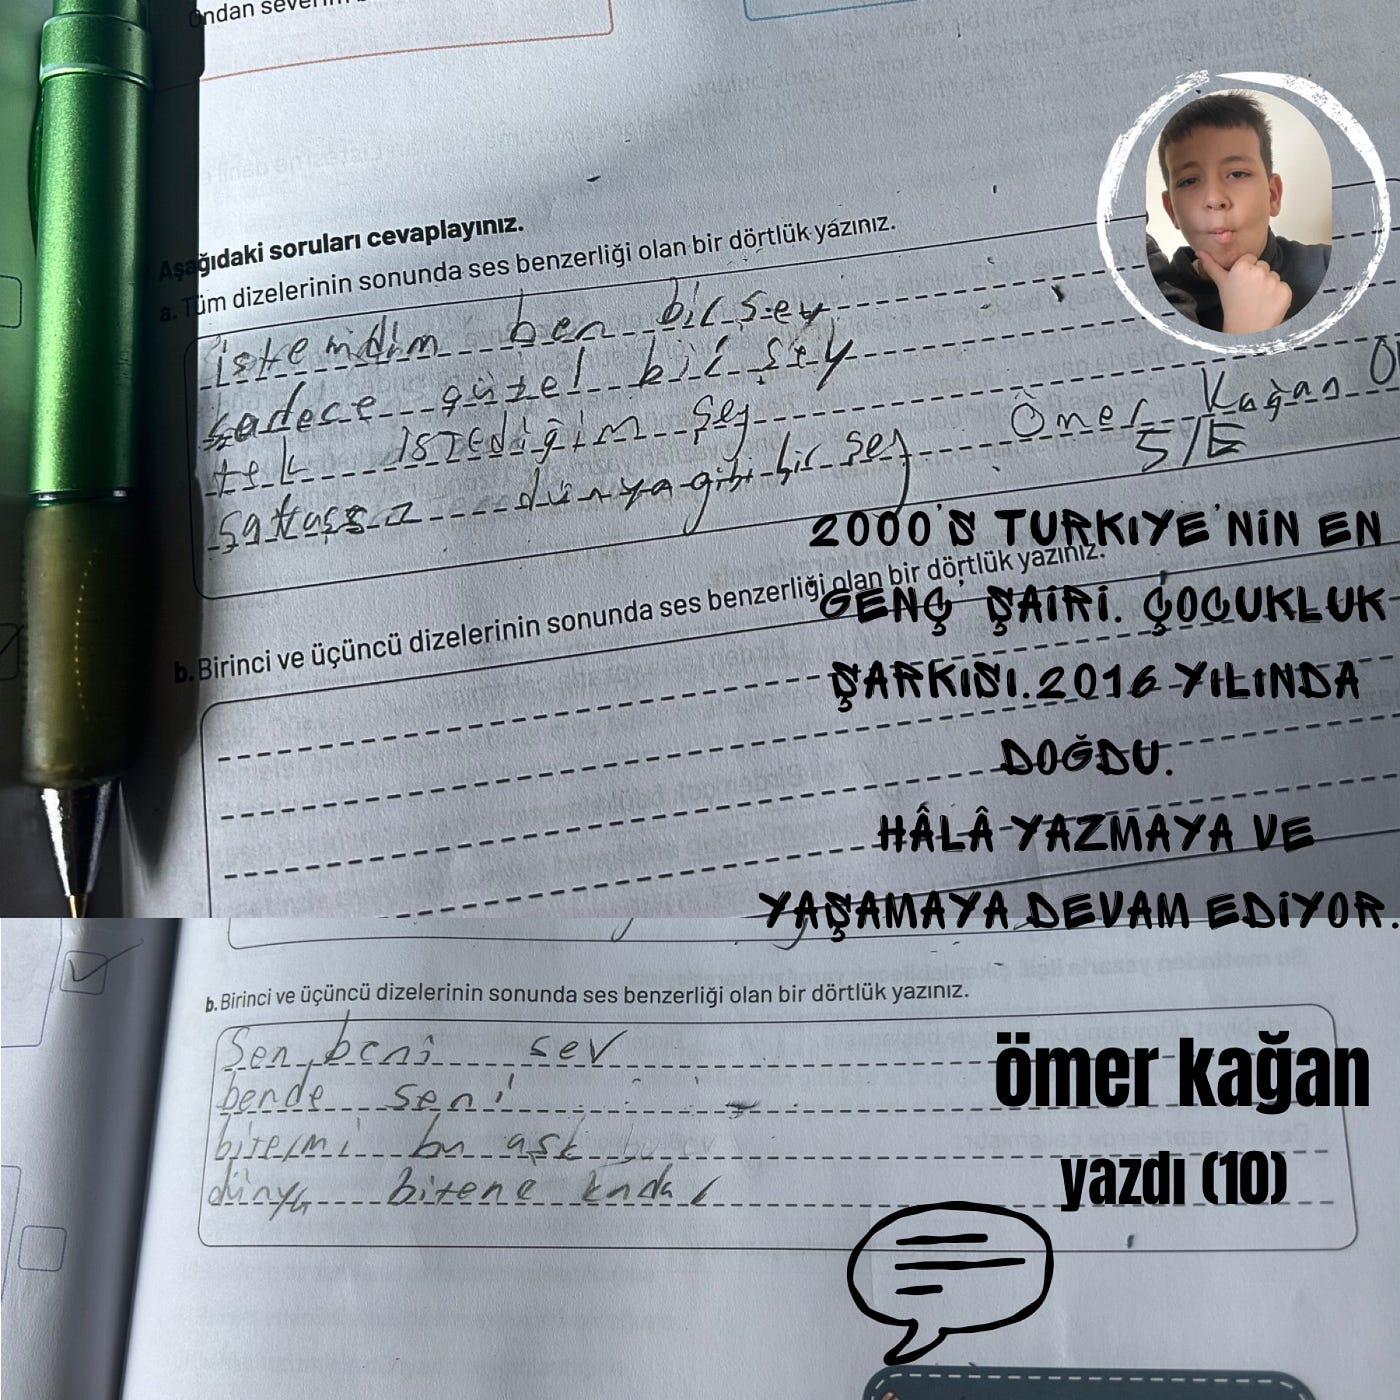 Ondan
Aşağıdaki soruları cevaplayınız.
a. Tüm dizelerinin sonunda ses benzerliği olan bir dörtlük yazınız.
istemdim ben bir şey
sadece güzel bir şey
tek istediğim şey
dünya gibi bir şey
Ömer Kağan
5/E
2000'S TURKIYE'NİN EN
GENÇ ŞAİRİ. ÇOCUKLUK
ŞARKISI.2016 YILINDA
DOĞDU.
HÂLÂ YAZMAYA VE
YAŞAMAYA DEVAM EDİYOR.
b. Birinci ve üçüncü dizelerinin sonunda ses benzerliği olan bir dörtlük yazınız.
b. Birinci ve üçüncü dizelerinin sonunda ses benzerliği olan bir dörtlük yazınız.
Sen beni sev
bende seni
bitermi bu aşk
dünya bitene kadar
ömer kağan
yazdı (10)